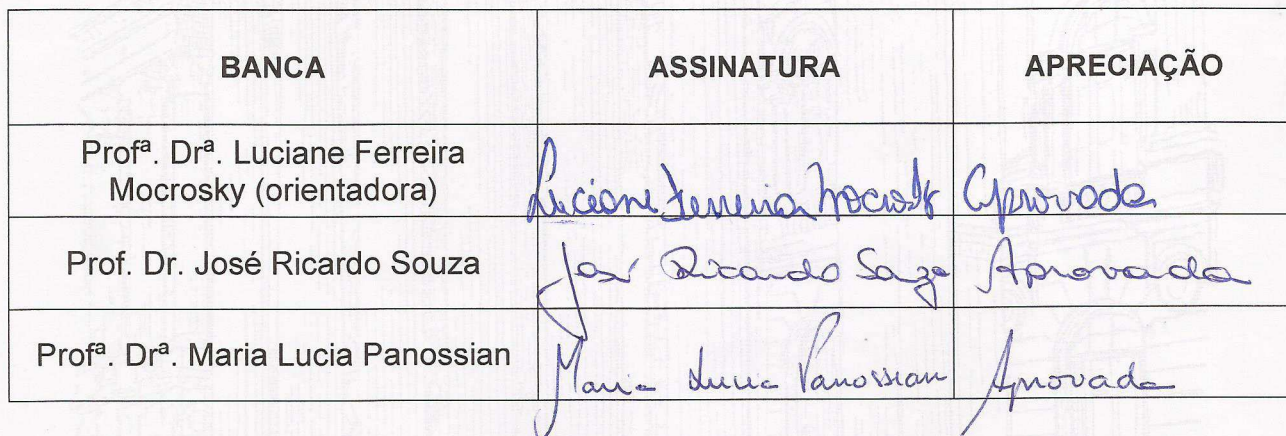 BANCA ASSINATURA APRECIAÇÃO
Profª. Drª. Luciane Ferreira
Mocrosky (orientadora)
Luciane Ferreira Mocrosky Aprovada
Prof. Dr. José Ricardo Souza José Ricardo Souza Aprovada
Profª. Drª. Maria Lucia Panossian Maria Lucia Panossian Aprovada